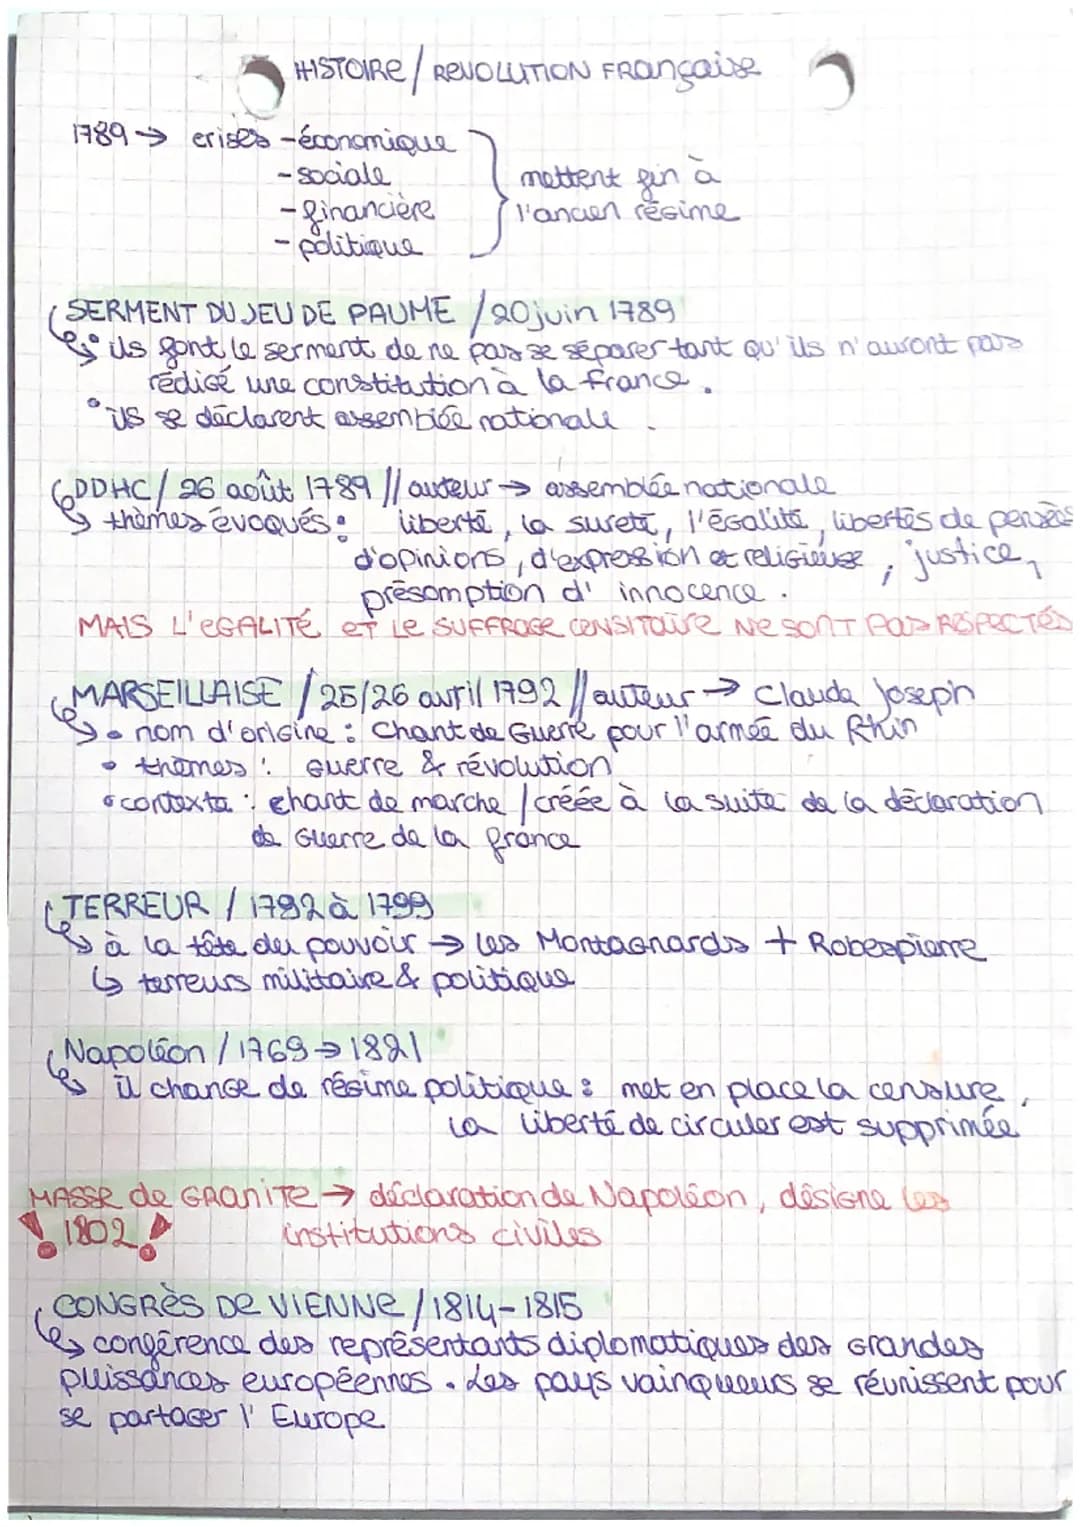 HISTOIRE / REVOLUTION FRANÇAISE
1789 → crises - économique
- sociale
- financière
- politique
mettent fin à
l'ancien régime
SERMENT DU JEU DE PAUME / 20 juin 1789
• ils font le serment de ne pas se séparer tant qu'ils n'auront pas
rédigé une constitution à la france.
• ils se déclarent assemblée nationale.
DDHC / 26 août 1789 // auteur → assemblée nationale
↳ thèmes évoqués : liberté, la sureté, l'égalité, libertés de pensées
d'opinions, d'expression et religieuse, justice,
présomption d'innocence.
MAIS L'EGALITÉ ET LE SUFFRAGE CENSITAIRE NE SONT PAS RESPECTÉS
MARSEILLAISE / 25/26 avril 1792 // auteur → Claude Joseph
• nom d'origine : Chant de Guerre pour l'armée du Rhin
• thèmes : Guerre & révolution
• contexte : chant de marche / créée à la suite de la déclaration
de Guerre de la france
TERREUR / 1792 à 1799
↳ à la tête du pouvoir → les Montagnards + Robespierre
↳ terreurs militaire & politique
Napoléon / 1769 → 1821
↳ il change de régime politique : met en place la censure,
la liberté de circuler est supprimée
MASSE de GRANITE → déclaration de Napoléon, désigne les
! 1802 ! institutions civiles
CONGRÈS DE VIENNE / 1814-1815
↳ conférence des représentants diplomatiques des Grandes
puissances européennes. Les pays vainqueurs se réunissent pour
se partager l'Europe